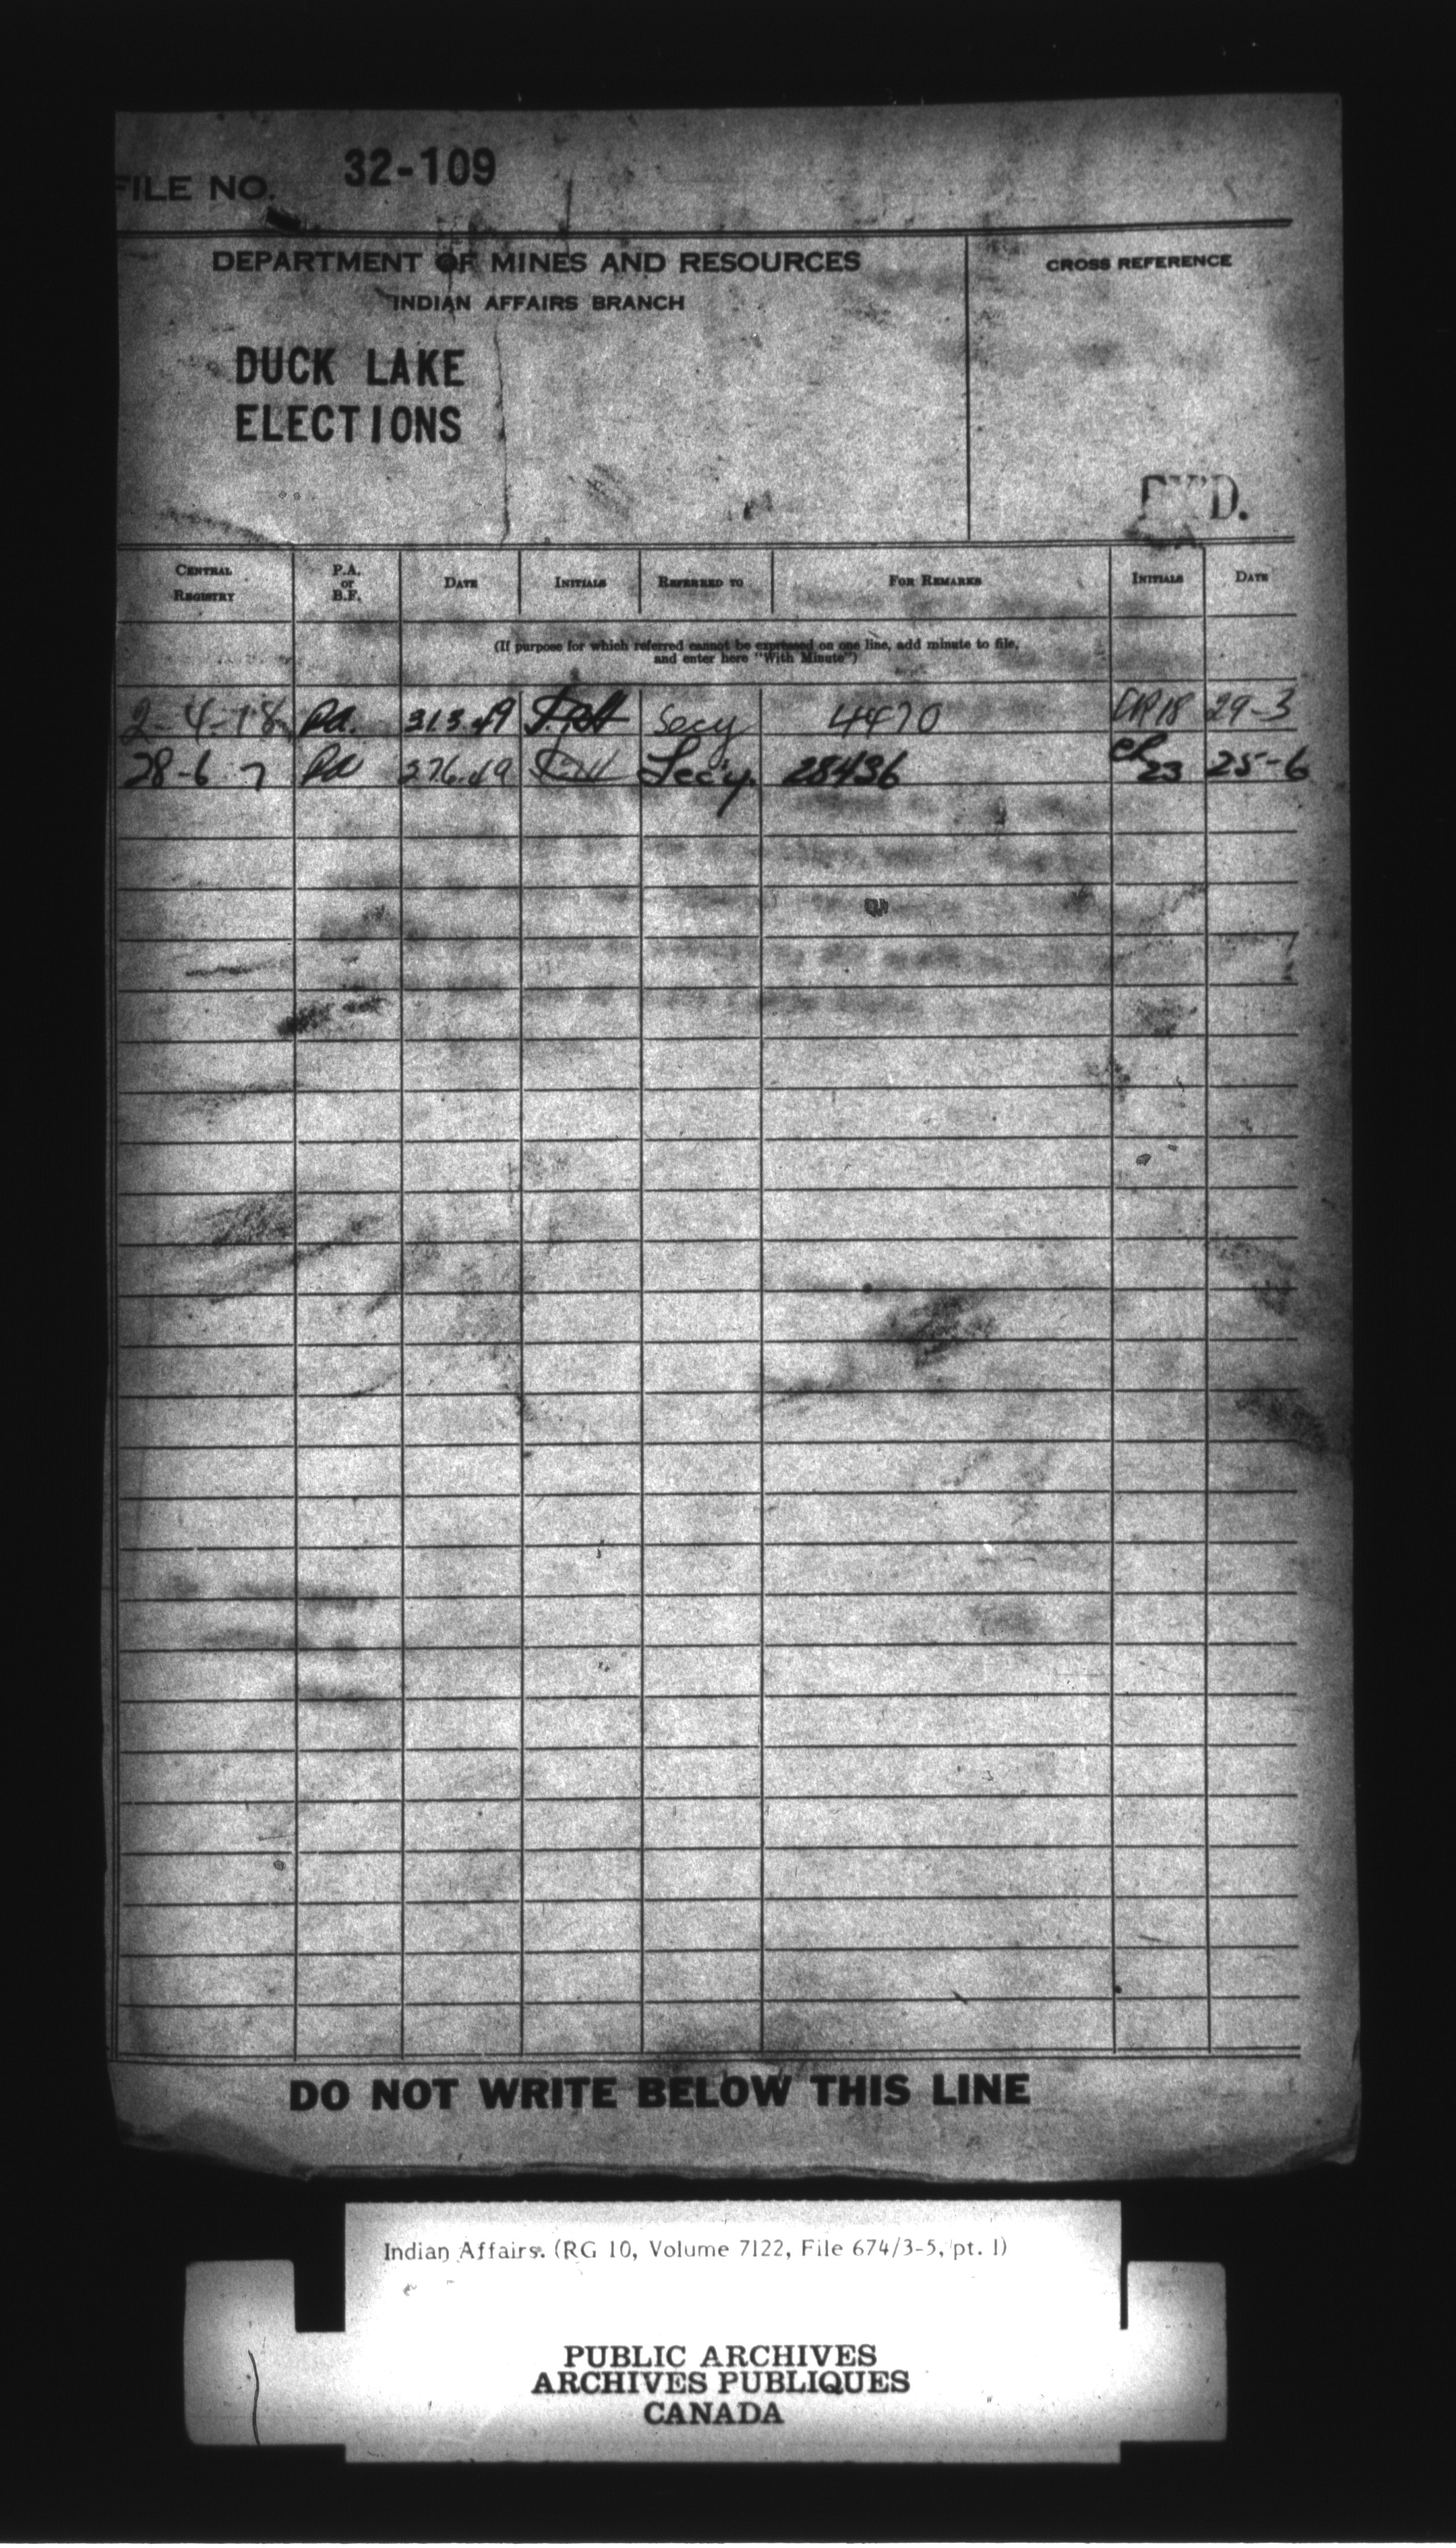 FILE NO. 32-109
DEPARTMENT OF MINES AND RESOURCES
INDIAN AFFAIRS BRANCH
CROSS REFERENCE
DUCK LAKE
ELECTIONS
CENTRAL REGISTRY P.A. or B.F. DATE INITIALS REFERRED TO FOR REMARKS INITIALS DATE
(If purpose for which referred cannot be expressed on one line, add minute to file,
and enter here "With Minute")
2-4-18 Pa. 31.3.49 Secy 4470 29-3
28-6 7 Pa 27.6.49 Secy. 28436 23 25-6
DO NOT WRITE BELOW THIS LINE
Indian Affairs. (RG 10, Volume 7122, File 674/3-5, pt. 1)
PUBLIC ARCHIVES
ARCHIVES PUBLIQUES
CANADA